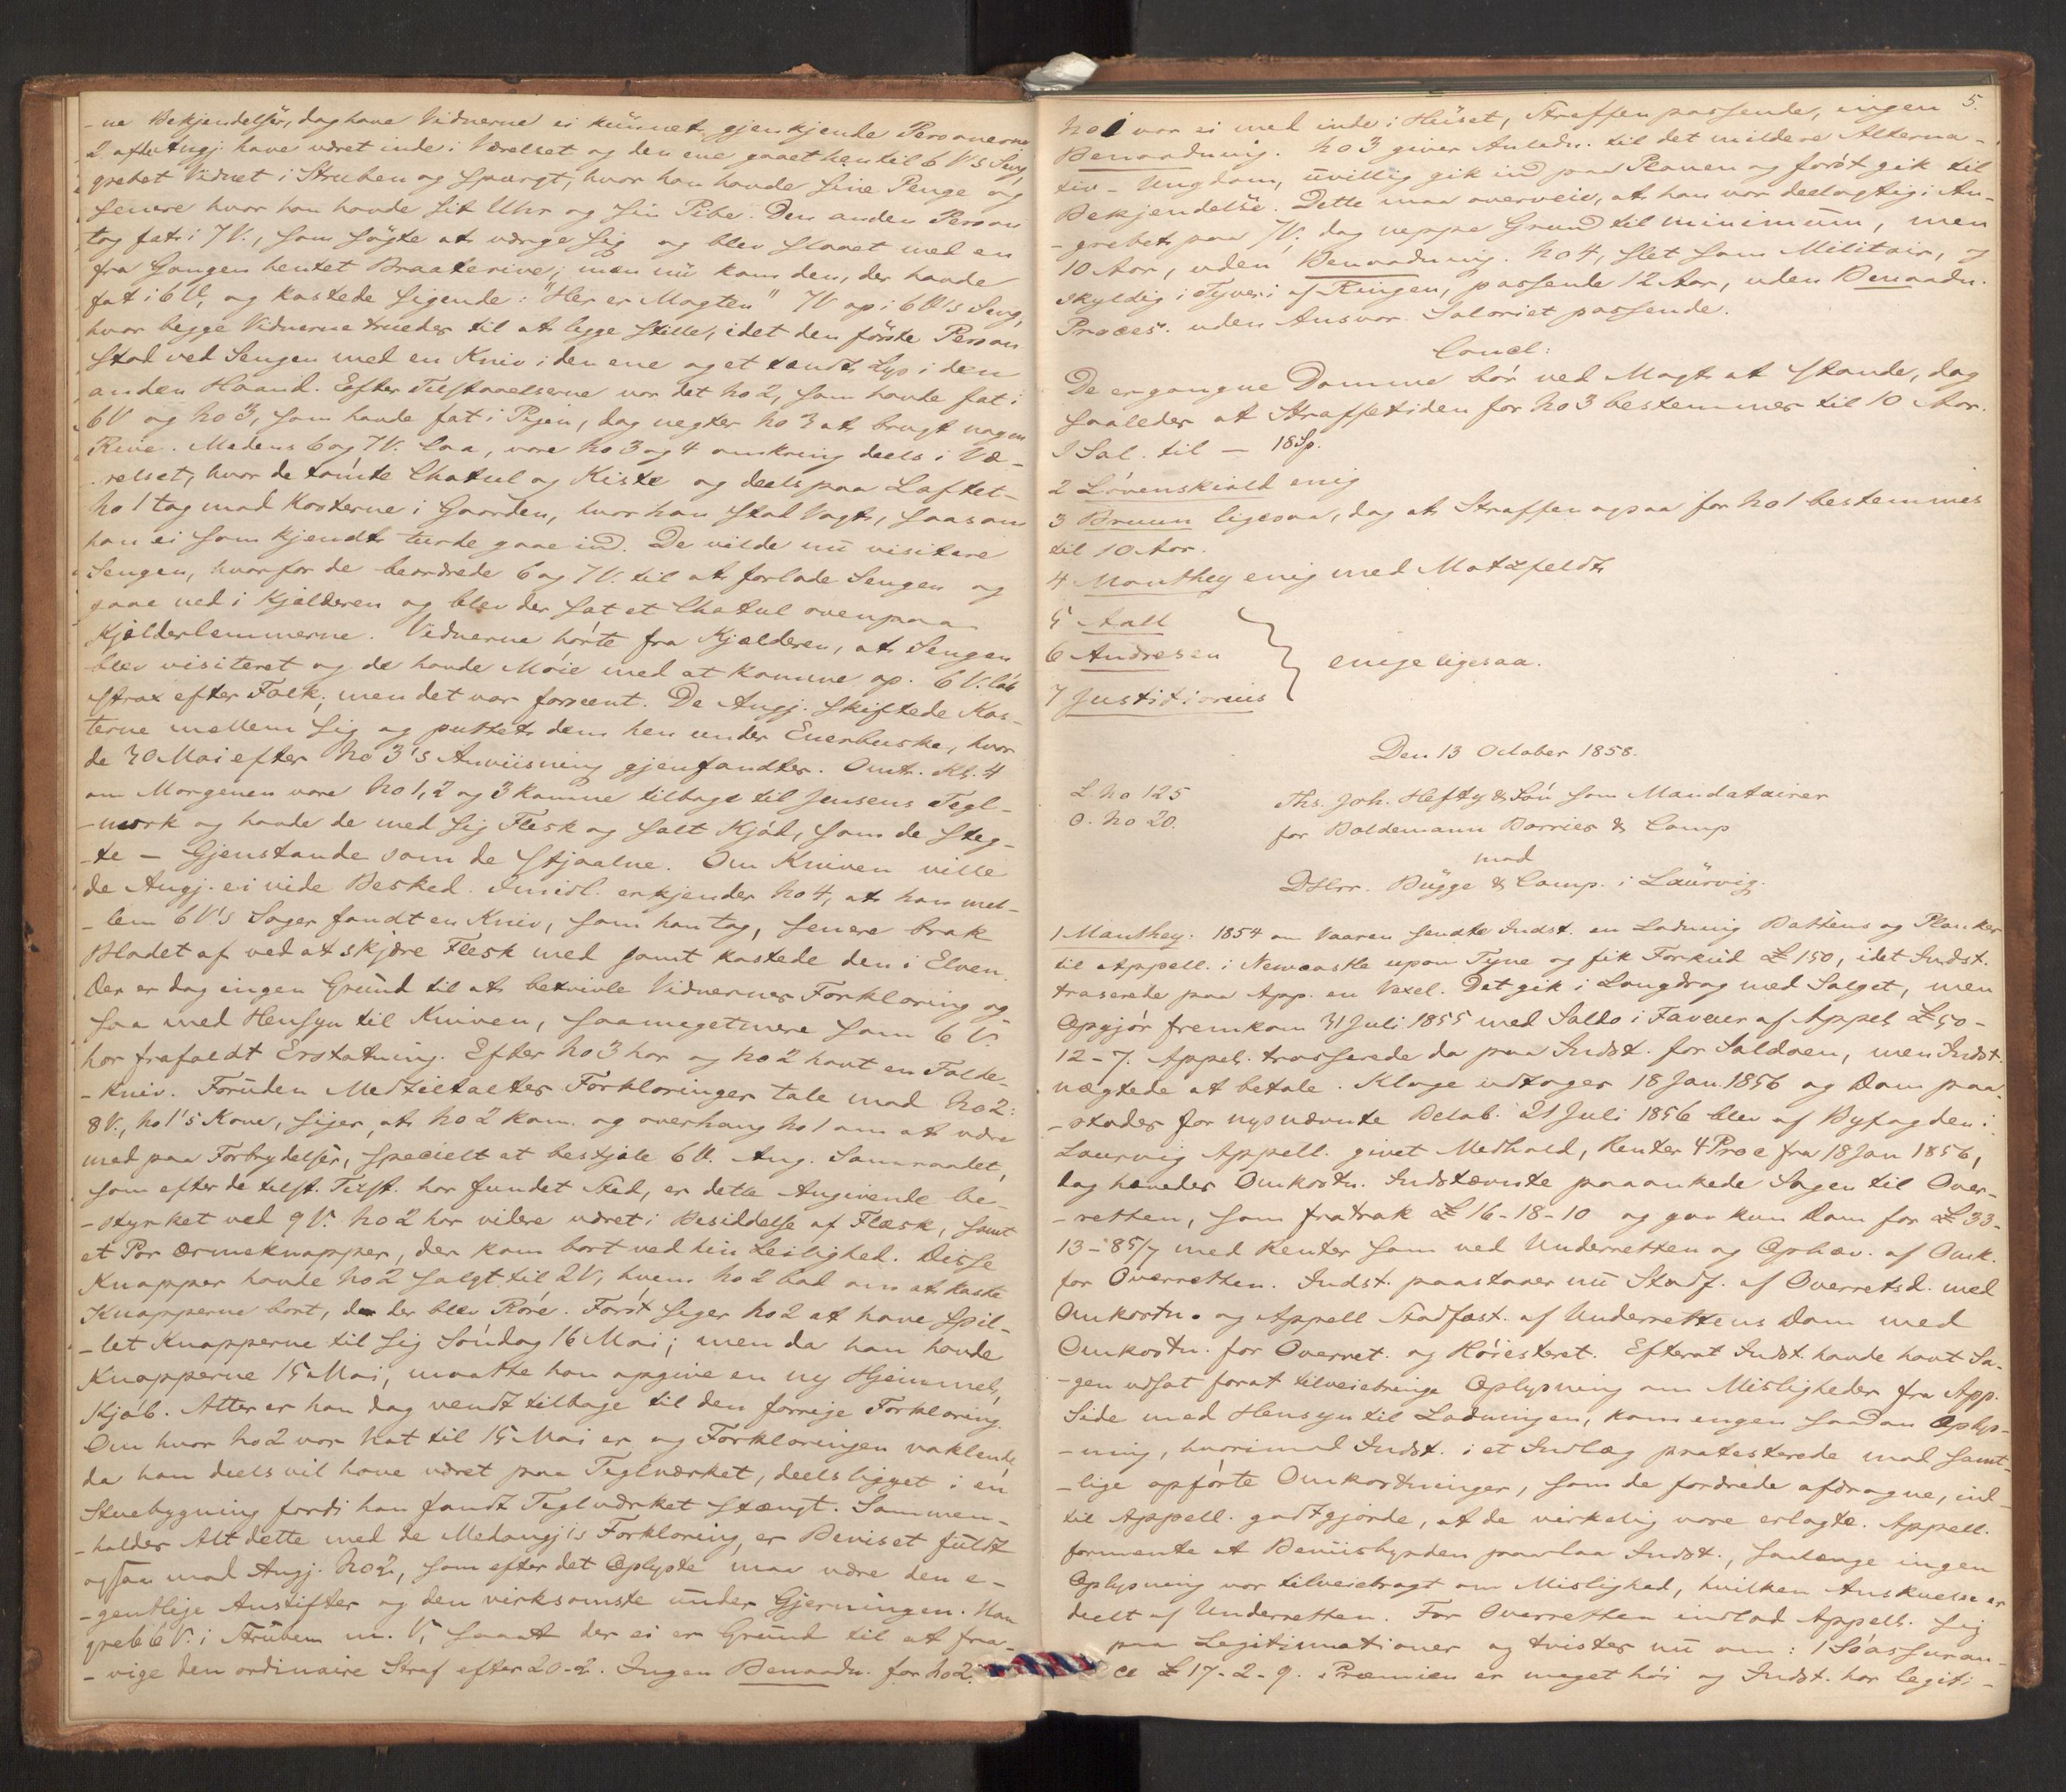 -ne Bekjendelser, dog have Vidnerne ei kunnet gjenkjende Personerne
2 af de Angj. have været inde i Værelset og den ene gaaet hen til 6 V's Seng,
grebet Vidnet i Struben og spurgt, hvor han havde sine Penge og
senere hvor han havde sit Uhr og sin Pibe. Den anden Person
tog fat i 7 V., som søgte at værge sig og blev slaaet med en
fra Gangen hentet Braaterive; men nu kom den, der havde
fat i 6 V, og kastede sigende: "Her er Magten" 7 V op i 6 V's Seng,
hvor begge Vidnerne truedes til at ligge stille, idet den første Person
stod ved Sengen med en Kniv i den ene og et tændt Lys i den
anden Haand. Efter Tilstaaelserne var det No 2, som havde fat i
6 V og No 3, som havde fat i Pigen, dog negter No 3 at brugt nogen
Rive. Medens 6 og 7 V. laa, vare No 3 og 4 omkring deels i Væ-
-relset, hvor de tømte Chatul og Kiste og deels paa Loftet-
No 1 tog mod Kosterne i Gaarden, hvor han stod Vagt, saasom
han ei som kjendt turde gaae ind. De vilde nu visitere
Sengen, hvorfor de beordrede 6 og 7 V. til at forlade Sengen og
gaae ned i Kjelderen og blev der sat et Chatul ovenpaa
Kjelderlemmerne. Vidnerne hørte fra Kjælderen, at Sengen
blev visiteret og de havde Møie med at komme op. 6 V. løb
strax efter Folk; men det var forseent. De Angj. skiftede Kos-
terne mellem sig og puttet dem hen under Enerbuske, hvor
de 30 Mai efter No 3's Anviisning gjenfandtes. Omtr. Kl. 4
om Morgenen vare No 1, 2 og 3 komne tilbage til Jensens Tegl-
-værk og havde de med sig Flesk og salt Kjød, som de steg-
-te - Gjenstande som de stjaalne. Om Kniven ville
de Angj. ei vide Besked. Imidl. erkjender No 4, at han mel-
-lem 6 V's Sager fandt en Kniv, som han tog, senere brak
Bladet af ved at skjære Flesk med samt kastede den i Elven.
Der er dog ingen Grund til at betvivle Vidnernes Forklaring og-
saa med Hensyn til Kniven, saameget mere som 6 V.
har frafaldt Erstatning. Efter No 3 har og No 2 havt en Folde-
-kniv. Foruden Medtiltaltes Forklaringer tale mod No 2:
8 V., No 1's Kone, siger, at No 2 kom og overhang No 1 om at være
med paa Forbrydelser, specielt at bestjæle 6 V. Ang. Samraadet,
som efter de tilst. Tilst. har fundet Sted, er dette Angivende be-
-styrket ved 9 V. No 2 har videre været i Besiddelse af Flæsk, samt
et Par Ærmeknapper, der kom bort ved hin Leilighed. Disse
Knapper havde No 2 solgt til 2 V, hvem No 2 bad om at kaste
Knapperne bort, da der blev Røre. Først siger No 2 at have spil-
-let Knapperne til sig Søndag 16 Mai; men da han havde
Knapperne 15 Mai, maatte han opgive en ny Hjemmel,
Kjøb. Atter er han dog vendt tilbage til den forrige Forklaring.
Om hvor No 2 var Nat til 15 Mai er og Forklaringen vaklende,
da han deels vil have været paa Teglværket, deels ligget i en
Stuebygning fordi han fandt Teglværket stængt. Sammen-
-holdes Alt dette med de Medangj's Forklaring, er Beviset fuldt
ogsaa mod Angj. No 2, som efter det Oplyste maa være den e-
-gentlige Anstifter og den virksomste under Gjerningen. Han
greb 6 V. i Struben m. V, saa at der ei er Grund til at fra-
-vige den ordinaire Straf efter 20-2. Ingen Benaadn. for No 2.
5.
No 1 var ei med inde i Huset, Straffen passende, ingen
Benaadning. No 3 giver Anledn. til det mildere Alterna-
tiv - Ungdom, uvillig gik ind paa Planen og først gik til
Bekjendelse. Dette maa overveie, at han var deelagtig i An-
-grebet paa 7 V, dog neppe Grund til minimum, men
10 Aar, uden Benaadning. No 4, slet som Militair, og
skyldig i Tyveri af Ringen, passende 12 Aar, uden Benaadn.
Proces. uden Ansvar. Salariet passende.
Concl:
De ergangne Domme bør ved Magt at stande, dog
saaledes at Straffetiden for No 3 bestemmes til 10 Aar.
Sal. til - 18 Sp.
2 Løvenskiold enig
3 Bruun ligesaa, dog at Straffen ogsaa for No 1 bestemmes
til 10 Aar.
4 Manthey enig med Motzfeldt
5 Aall
6 Andresen
enige ligesaa.
7 Justitiarius
Den 13 October 1858.
L. No 125
O. No 20.
Ths. Joh. Hefty & Søn som Mandatairer
for Boldemann Borries & Comp
mod
DHrr. Bugge & Comp. i Laurvig.
1 Manthey. 1854 om Vaaren sendte Indst. en Ladning Battens og Planker
til Appell. i Newcastle upon Tyne og fik Forskud £ 150, idet Indst.
traserede paa App. en Vexel. Det gik i Langdrag med Salget, men
Opgjør fremkom 31 Juli 1855 med Saldo i Faveur af Appel. £ 50-
12-7. Appel. trasserede da paa Indst. for Saldoen, men Indst.
nægtede at betale. Klage udtoges 18 Jan. 1856 og Dom paa-
-stodes for nysnævnte Beløb. 21 Juli 1856 blev af Byfogden i
Laurvig Appell. givet Medhold, Renter 4 Proc fra 18 Jan 1856,
dog hævedes Omkostn. Indstævnte paaankede Sagen til Over-
-retten, som fratrak £ 16-18-10 og gav kun Dom for £ 33-
13-8 5/7 med Renter som ved Underretten og Ophæv. af Omk.
for Overretten. Indst. paastaaer nu Stadf. af Overretsd. med
Omkostn. og Appell Stadfæst. af Underrettens Dom med
Omkostn. for Overret. og Høiesteret. Efterat Indst. havde havt Sa-
-gen udsat forat tilveiebringe Oplysning om Misligheder fra App.
Side med Hensyn til Ladningen, kom ingen saadan Oplys-
-ning, hvorimod Indst. i et Indlæg protesterede mod samt-
-lige opførte Omkostninger, som de fordrede afdragne, ind-
til Appell. godtgjorde, at de virkelig vare erlagte. Appell.
formente at Beviisbyrden paalaa Indst., saalænge ingen
Oplysning var tilveiebragt om Mislighed, hvilken Anskuelse er
deelt af Underretten. For Overretten indlod Appell. sig
paa Legitimationer og tvistes nu om: 1 Søassuran-
ce £ 17-2-9. Præmien er meget høi og Indst. har legiti-